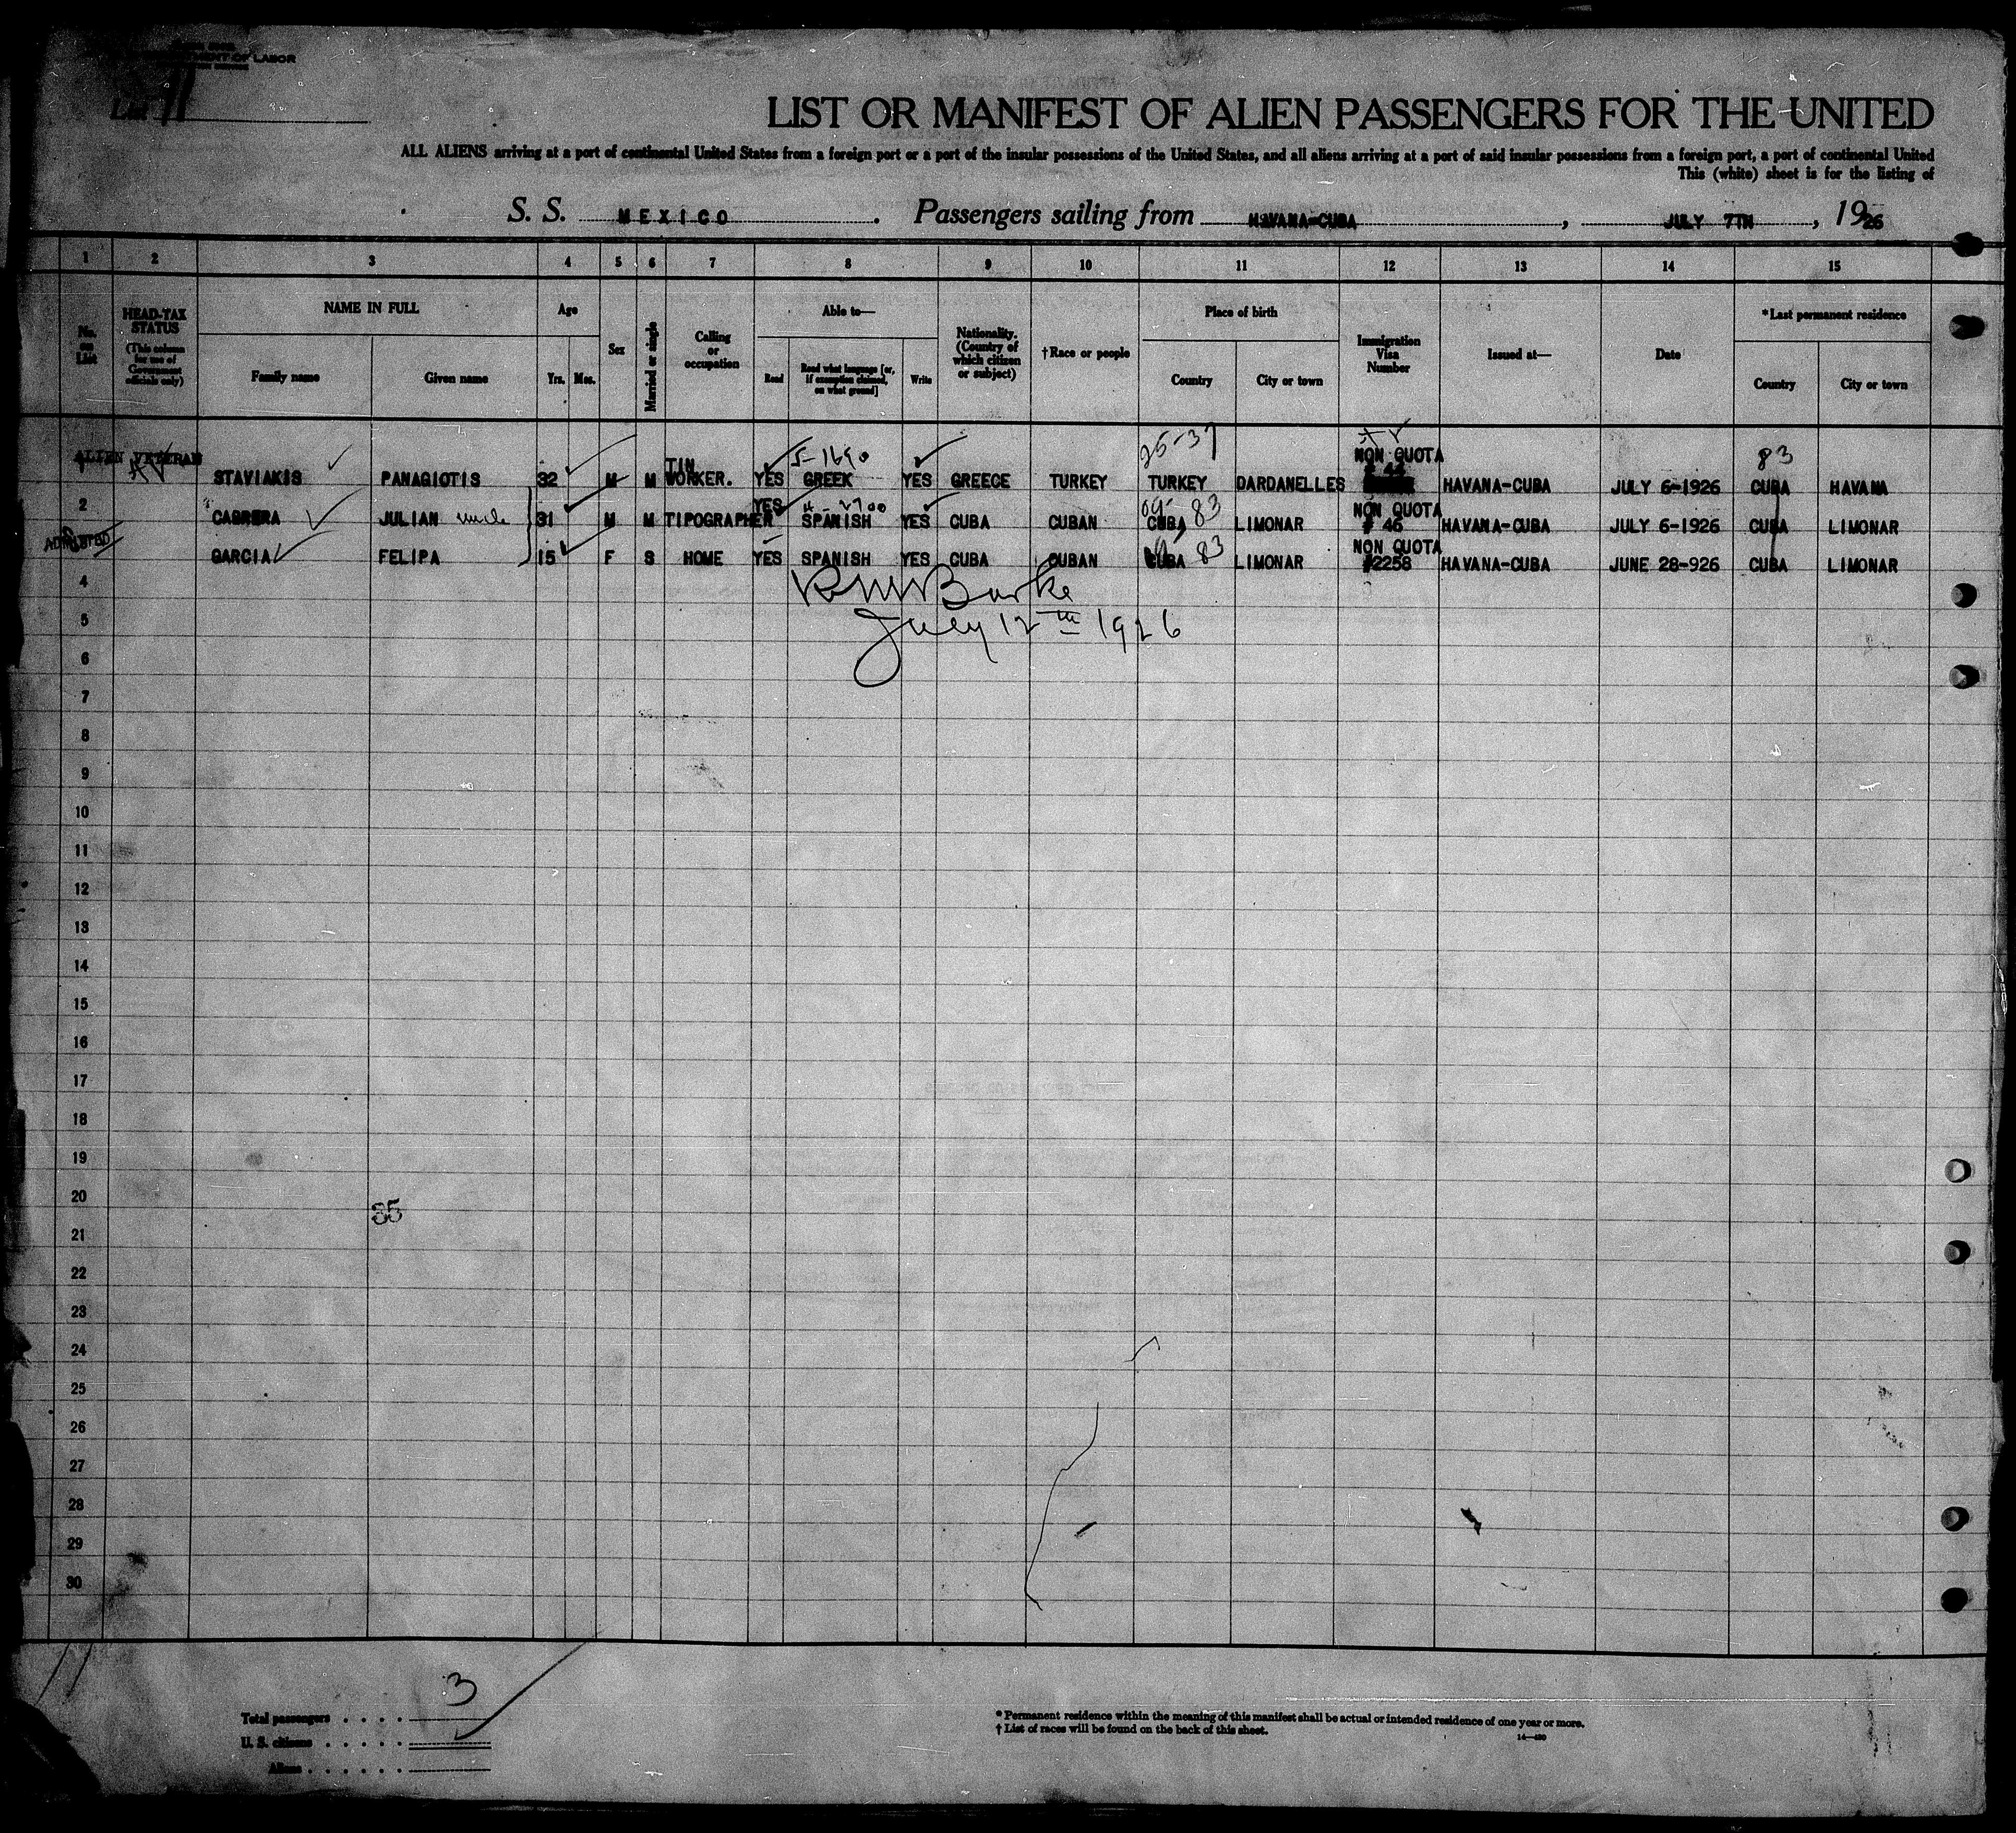 DEPARTMENT OF LABOR
List 11
LIST OR MANIFEST OF ALIEN PASSENGERS FOR THE UNITED
ALL ALIENS arriving at a port of continental United States from a foreign port or a port of the insular possessions of the United States, and all aliens arriving at a port of said insular possessions from a foreign port, a port of continental United
This (white) sheet is for the listing of
S. S. MEXICO. Passengers sailing from HAVANA-CUBA, JULY 7TH, 1926
1 2 3 4 5 6 7 8 9 10 11 12 13 14 15
No. on List
HEAD-TAX STATUS (This column for use of Government officials only)
NAME IN FULL
Family name
Given name
Age
Yrs. Mos.
Sex
Married or single
Calling or occupation
Able to—
Read
Read what language [or, if exemption claimed, on what ground]
Write
Nationality. (Country of which citizen or subject)
†Race or people
Place of birth
Country
City or town
Immigration Visa Number
Issued at—
Date
*Last permanent residence
Country
City or town
ALIEN VETERAN STAVIAKIS PANAGIOTIS 32 M M TIN WORKER. YES 5-1690 GREEK YES GREECE TURKEY 25-37 TURKEY DARDANELLES NON QUOTA # 44 HAVANA-CUBA JULY 6-1926 83 CUBA HAVANA
2 CABRERA JULIAN uncle 31 M M TIPOGRAPHER YES 4-2700 SPANISH YES CUBA CUBAN 09-83 CUBA LIMONAR NON QUOTA # 46 HAVANA-CUBA JULY 6-1926 CUBA LIMONAR
ADMITTED GARCIA FELIPA 15 F S HOME YES SPANISH YES CUBA CUBAN 83 CUBA LIMONAR NON QUOTA #2258 HAVANA-CUBA JUNE 28-926 CUBA LIMONAR
4
Burke
5
July 12th 1926
6
7
8
9
10
11
12
13
14
15
16
17
18
19
20
35
21
22
23
24
25
26
27
28
29
30
11
3
Total passengers . . . .
U. S. citizens . . . . .
Aliens . . . . . .
* Permanent residence within the meaning of this manifest shall be actual or intended residence of one year or more.
† List of races will be found on the back of this sheet.
14—430